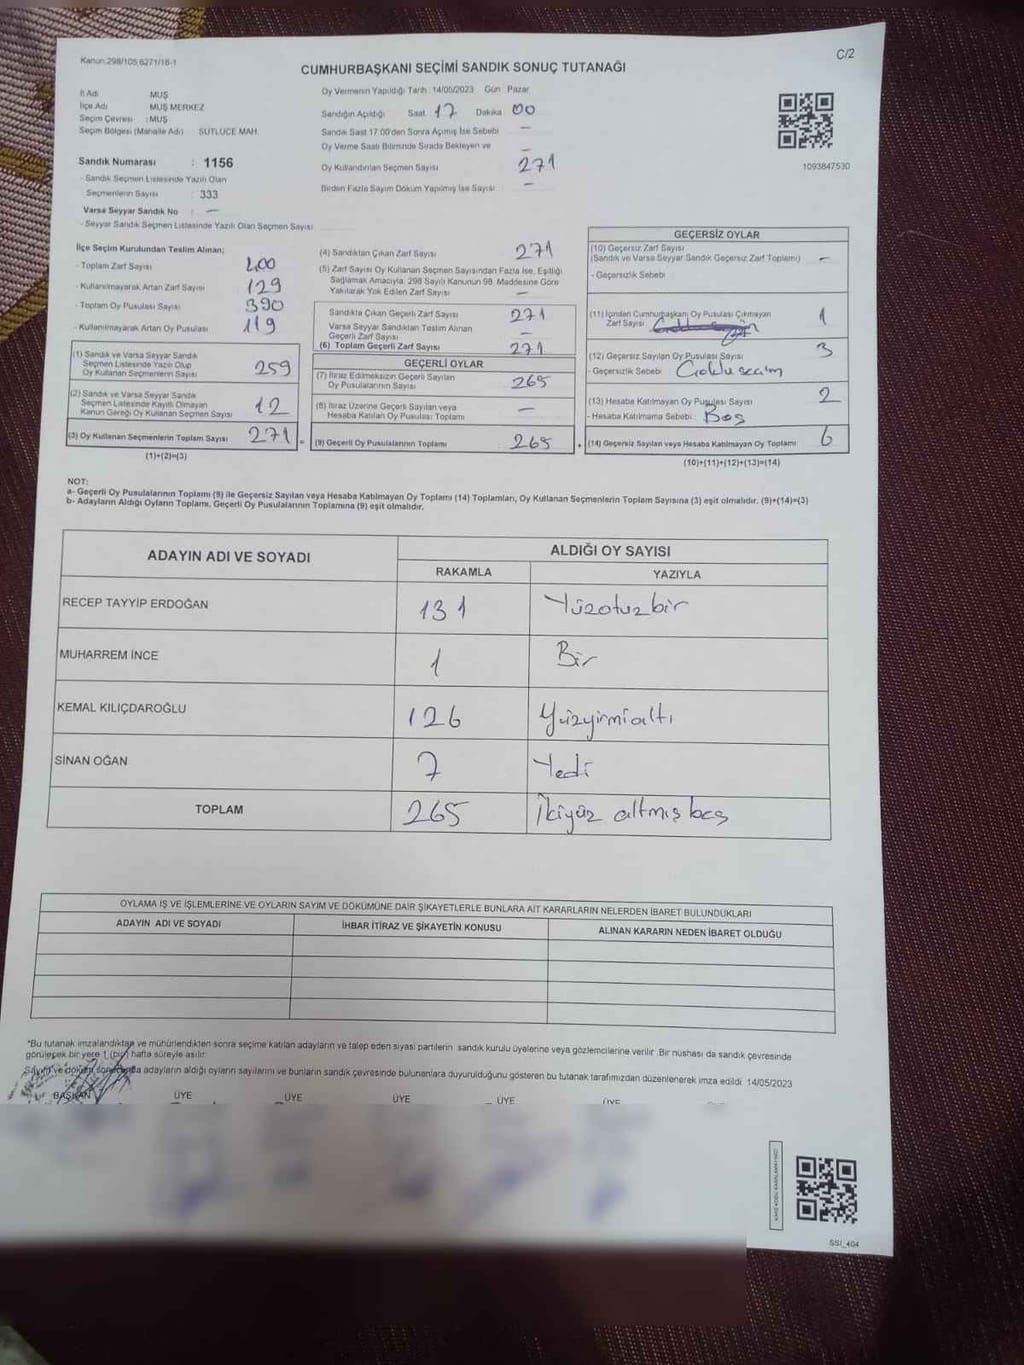 Kanun:298/105;6271/18-1
C/2
CUMHURBAŞKANI SEÇİMİ SANDIK SONUÇ TUTANAĞI
İl Adı MUŞ
İlçe Adı MUŞ MERKEZ
Seçim Çevresi :MUŞ
Seçim Bölgesi (Mahalle Adı) SÜTLÜCE MAH.
Sandık Numarası : 1156
- Sandık Seçmen Listesinde Yazılı Olan
Seçmenlerin Sayısı : 333
Varsa Seyyar Sandık No : —
- Seyyar Sandık Seçmen Listesinde Yazılı Olan Seçmen Sayısı
Oy Vermenin Yapıldığı Tarih :14/05/2023 Gün Pazar
Sandığın Açıldığı Saat 17 Dakika 00
Sandık Saat 17.00'den Sonra Açımış İse Sebebi —
Oy Verme Saati Bitiminde Sırada Bekleyen ve —
Oy Kullandırılan Seçmen Sayısı 271
Birden Fazla Sayım Döküm Yapılmış İse Sayısı —
1093847530
İlçe Seçim Kurulundan Teslim Alınan;
- Toplam Zarf Sayısı 400
- Kullanılmayarak Artan Zarf Sayısı 129
- Toplam Oy Pusulası Sayısı 390
- Kullanılmayarak Artan Oy Pusulası 119
(1) Sandık ve Varsa Seyyar Sandık
Seçmen Listesinde Yazılı Olup
Oy Kullanan Seçmenlerin Sayısı 259
(2) Sandık ve Varsa Seyyar Sandık
Seçmen Listesinde Kayıtlı Olmayan
Kanun Gereği Oy Kullanan Seçmen Sayısı 12
(3) Oy Kullanan Seçmenlerin Toplam Sayısı 271 =
(1)+(2)=(3)
(4) Sandıktan Çıkan Zarf Sayısı 271
(5) Zarf Sayısı Oy Kullanan Seçmen Sayısından Fazla İse, Eşitliği
Sağlamak Amacıyla, 298 Sayılı Kanunun 98. Maddesine Göre
Yakılarak Yok Edilen Zarf Sayısı —
Sandıkta Çıkan Geçerli Zarf Sayısı 271
Varsa Seyyar Sandıktan Teslim Alınan
Geçerli Zarf Sayısı —
(6) Toplam Geçerli Zarf Sayısı 271
GEÇERLİ OYLAR
(7) İtiraz Edilmeksizin Geçerli Sayılan
Oy Pusulalarının Sayısı 265
(8) İtiraz Üzerine Geçerli Sayılan veya
Hesaba Katılan Oy Pusulası Toplamı —
(9) Geçerli Oy Pusulalarının Toplamı 265 +
GEÇERSİZ OYLAR
(10) Geçersiz Zarf Sayısı
(Sandık ve Varsa Seyyar Sandık Geçersiz Zarf Toplamı) —
- Geçersizlik Sebebi
(11) İçinden Cumhurbaşkanı Oy Pusulası Çıkmayan
Zarf Sayısı 1
(12) Geçersiz Sayılan Oy Pusulası Sayısı 3
- Geçersizlik Sebebi
(13) Hesaba Katılmayan Oy Pusulası Sayısı 2
- Hesaba Katılmama Sebebi : Boş
(14) Geçersiz Sayılan veya Hesaba Katılmayan Oy Toplamı 6
(10)+(11)+(12)+(13)=(14)
NOT:
a- Geçerli Oy Pusulalarının Toplamı (9) ile Geçersiz Sayılan veya Hesaba Katılmayan Oy Toplamı (14) Toplamları, Oy Kullanan Seçmenlerin Toplam Sayısına (3) eşit olmalıdır. (9)+(14)=(3)
b- Adayların Aldığı Oyların Toplamı, Geçerli Oy Pusulalarının Toplamına (9) eşit olmalıdır.
ADAYIN ADI VE SOYADI ALDIĞI OY SAYISI
RAKAMLA YAZIYLA
RECEP TAYYİP ERDOĞAN 131 Yüzotuzbir
MUHARREM İNCE 1 Bir
KEMAL KILIÇDAROĞLU 126 Yüzyirmialtı
SİNAN OĞAN 7 Yedi
TOPLAM 265 İkiyüz altmış beş
OYLAMA İŞ VE İŞLEMLERİNE VE OYLARIN SAYIM VE DÖKÜMÜNE DAİR ŞİKAYETLERLE BUNLARA AİT KARARLARIN NELERDEN İBARET BULUNDUKLARI
ADAYIN ADI VE SOYADI İHBAR İTİRAZ VE ŞİKAYETİN KONUSU ALINAN KARARIN NEDEN İBARET OLDUĞU
*Bu tutanak imzalandıktan ve mühürlendikten sonra seçime katılan adayların ve talep eden siyasi partilerin sandık kurulu üyelerine veya gözlemcilerine verilir. Bir nüshası da sandık çevresinde
görülecek bir yere 1 (bir) hafta süreyle asılır.
Sayım ve döküm sonucunda adayların aldığı oyların sayılarını ve bunların sandık çevresinde bulunanlara duyurulduğunu gösteren bu tutanak tarafımızdan düzenlenerek imza edildi. 14/05/2023
BAŞKAN ÜYE ÜYE ÜYE ÜYE ÜYE
SSI_404